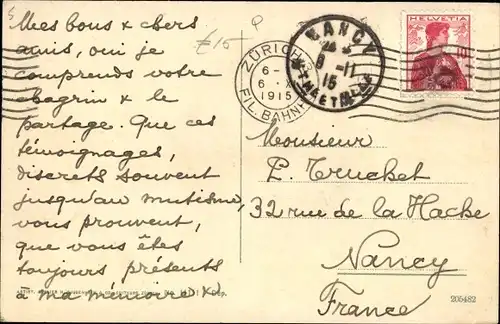 Mes bons & chers
amis, oui je
comprends votre
chagrin & le
partage. Que ces
témoignages,
discrets souvent
jusqu'au mutisme,
vous prouvent,
que vous êtes
toujours présents
à ma mémoire
£15
ZÜRICH
6 -
1915
FIL. BAHNH
NANCY
-11
15
HELVETIA
Monsieur
E. Truchet
32 rue de la Hache
Nancy
France
205482